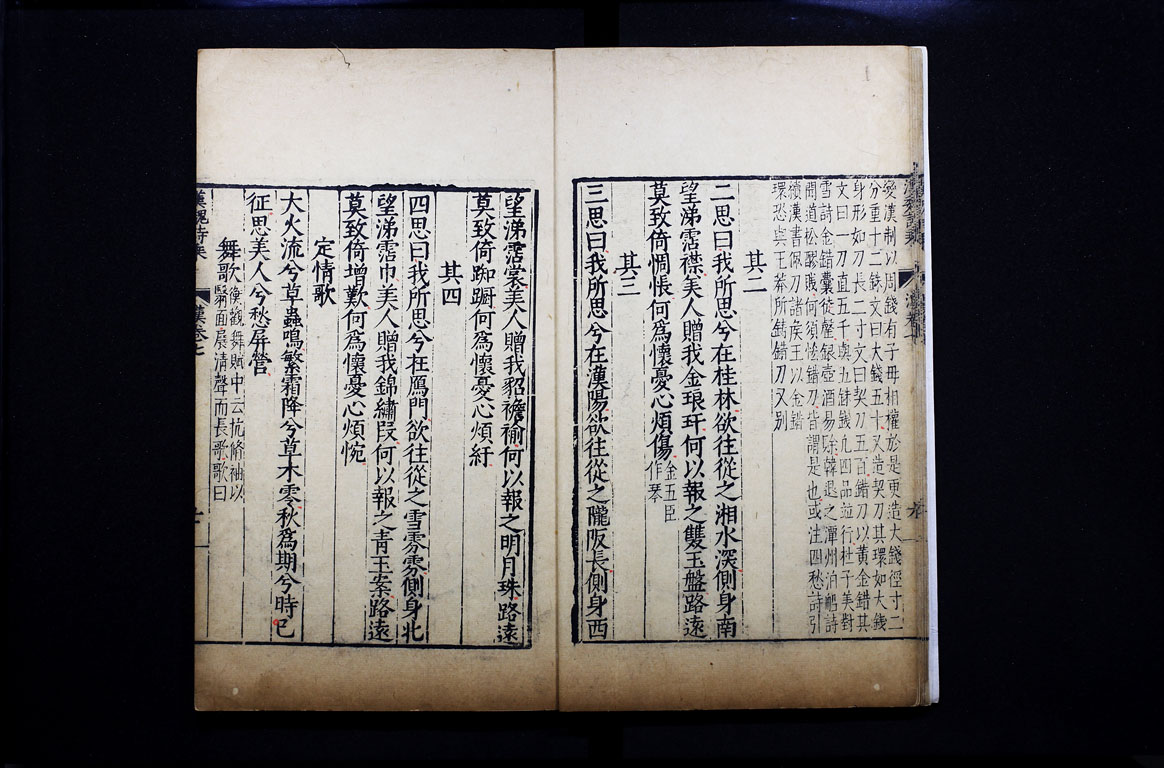 變漢制以周錢有子母相權於是更造大錢徑寸二
分重十二銖文曰大錢五十又造契刀其環如大錢
身形如刀長二寸文曰契刀五百錯刀以黃金錯其
文曰一刀直五千與五銖錢凢四品並行杜子美對
雪詩金錯囊從罄銀壺酒易賒韓退之潭州泊船詩
聞道松醪賤何須恡錯刀皆謂是也或注四愁詩引
續漢書佩刀諸矦王以金錯
環恐與王莽所鑄錯刀又别
其二
二思曰我所思兮在桂林欲往從之湘水深側身南
望涕霑襟美人贈我金琅玕何以報之雙玉盤路遠
莫致倚惆悵何爲懷憂心煩傷金五臣
作琴
其三
三思曰我所思兮在漢陽欲往從之隴阪長側身西
望涕霑裳美人贈我貂襜褕何以報之明月珠路遠
莫致倚踟蹰何爲懷憂心煩紆
其四
四思曰我所思兮在鴈門欲往從之雪雰雰側身北
望涕霑巾美人贈我錦繡段何以報之青玉案路遠
莫致倚增歎何爲懷憂心煩惋
定情歌
大火流兮草蟲鳴繁霜降兮草木零秋爲期兮時已
征思美人兮愁屏營
舞歌衡觀舞賦中云抗脩袖以
翳面展清聲而長歌歌曰
漢魏詩集 漢卷七